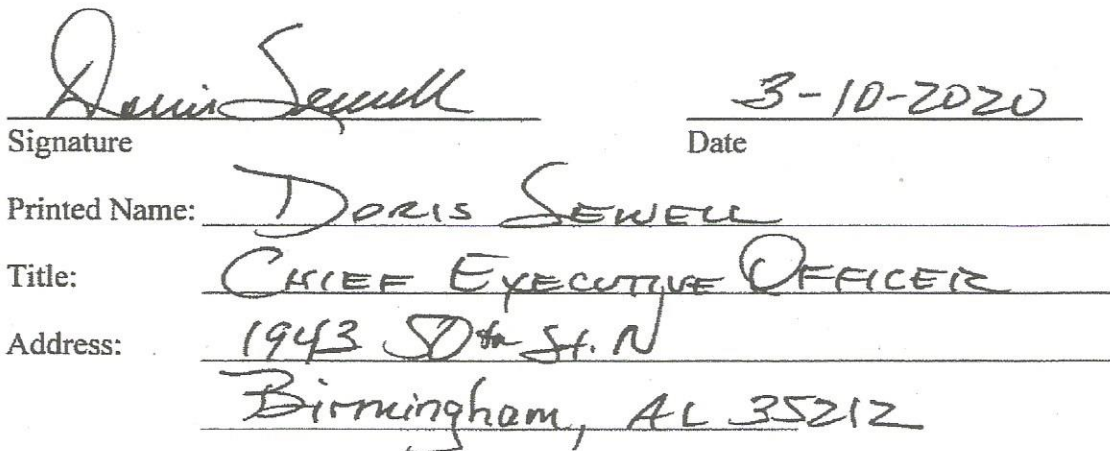 Doris Sewell 3-10-2020
Signature Date
Printed Name: DORIS SEWELL
Title: CHIEF EXECUTIVE OFFICER
Address: 1943 50th St. N
Birmingham, AL 35212